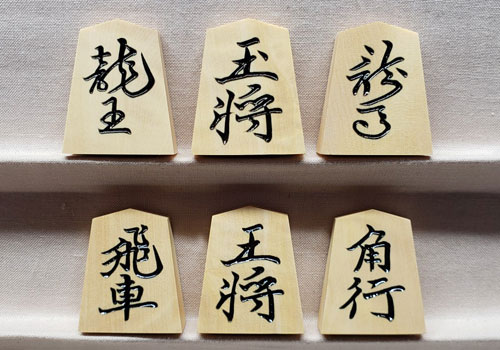 龍王
玉将
龍馬
飛車
王将
角行